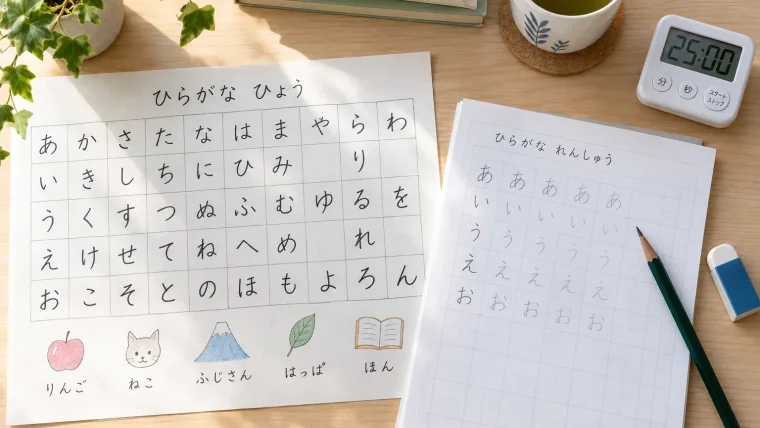 ひらがな ひょう
あ か さ た な は ま や ら わ
い き し ち に ひ み り
う く す つ ぬ ふ む ゆ る を
え け せ て ね へ め れ
お こ そ と の ほ も よ ろ ん
りんご ねこ ふじさん はっぱ ほん
ひらがな れんしゅう
あ あ あ あ あ
い い い い い
う う う う う
え え え え え
お お お お お
25:00
分 秒 スタート
ストップ